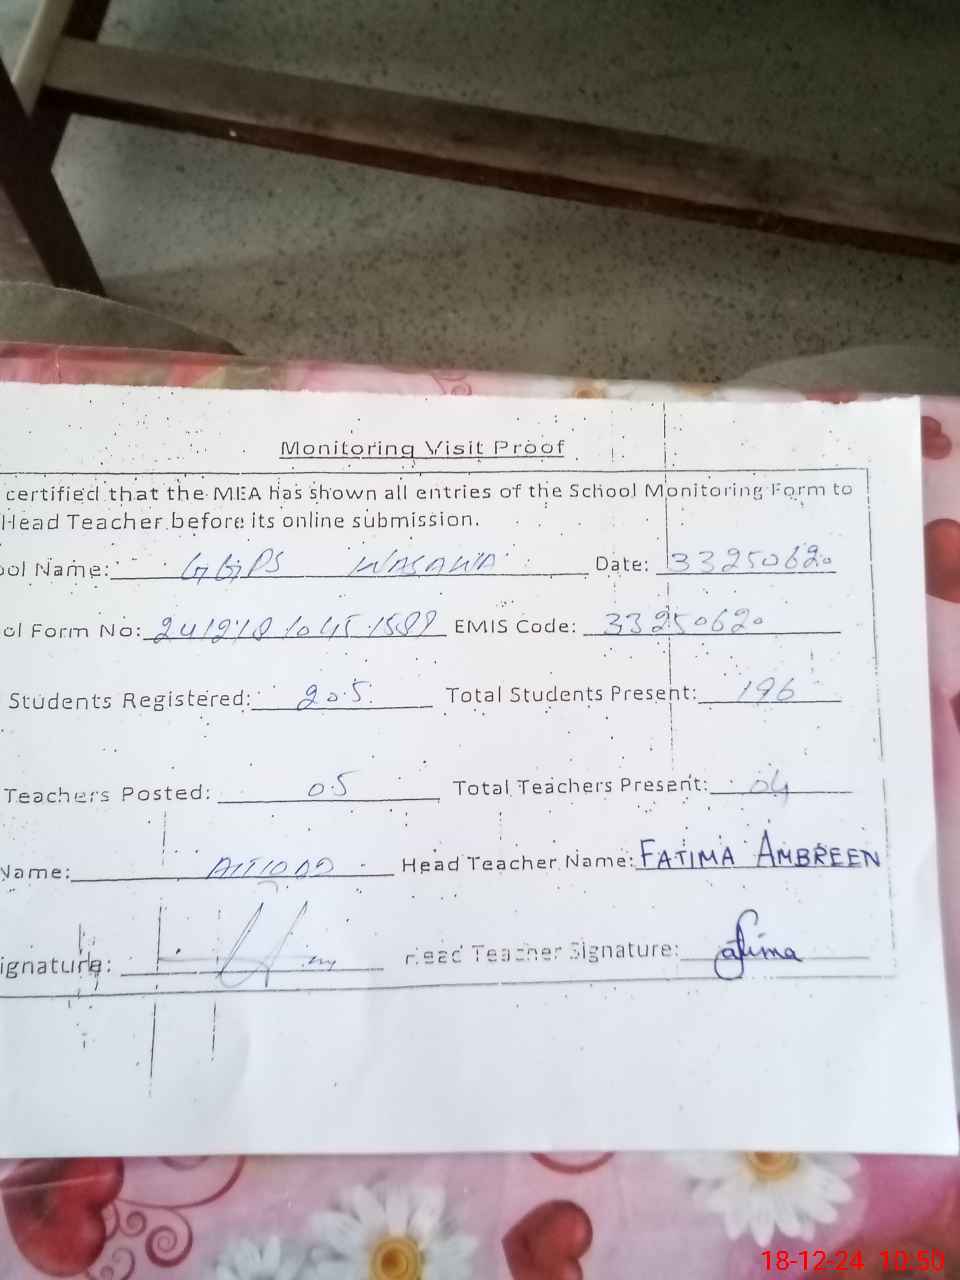 Monitoring Visit Proof
certified that the MEA has shown all entries of the School Monitoring Form to
Head Teacher before its online submission.
ool Name: GGPS WASAWA Date: 33250620
ol Form No: 241218 1045 1589 EMIS Code: 33250620
Students Registered: 205 Total Students Present: 196
Teachers Posted: 05 Total Teachers Present: 04
Name: Head Teacher Name: FATIMA AMBREEN
ignature: Head Teacher Signature: fatima
18-12-24 10:50